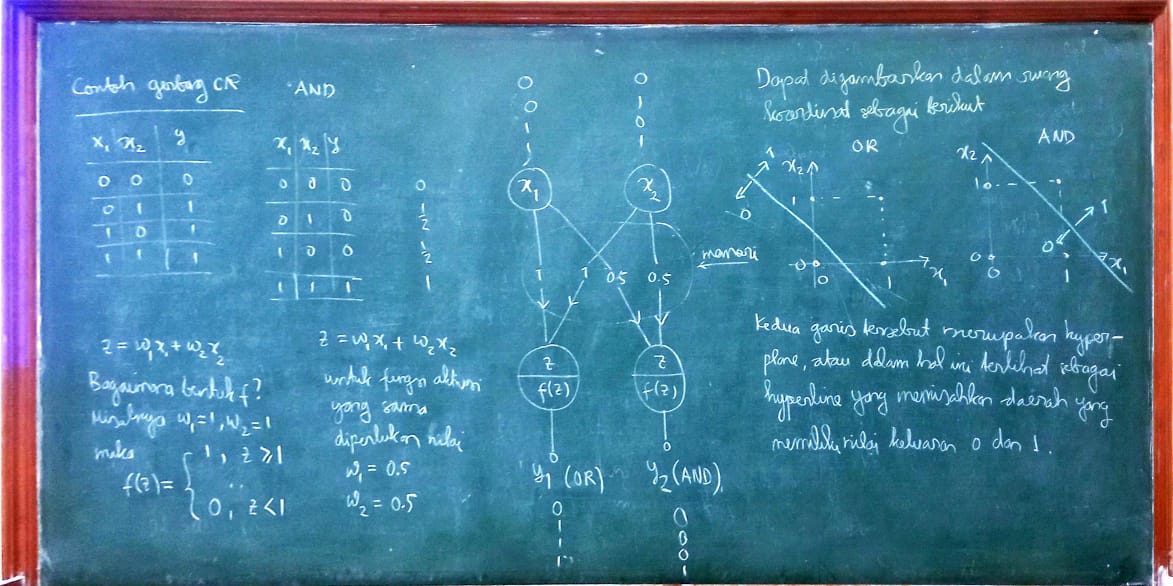 Contoh gerbang OR
x₁ x₂ y
0 0 0
0 1 1
1 0 1
1 1 1
z = w₁x₁ + w₂x₂
Bagaimana bentuk f?
Misalnya w₁=1, w₂=1
maka
f(z) = { 1, z ≥ 1
0, z < 1
AND
x₁ x₂ y
0 0 0 0
0 1 0 1/2
1 0 0 1/2
1 1 1 1
z = w₁x₁ + w₂x₂
untuk fungsi aktivasi
yang sama
diperlukan nilai
w₁ = 0.5
w₂ = 0.5
0 0
0 1
1 0
1 1
x₁ x₂
1 1 0.5 0.5
memori
z z
f(z) f(z)
y₁ (OR) y₂ (AND)
0 0
1 0
1 0
1 1
Dapat digambarkan dalam ruang
koordinat sebagai berikut
OR
x₂
1
0
1
0
0
1
x₁
AND
x₂
1
0
0
1
0
1
x₁
Kedua garis tersebut merupakan hyper-
plane, atau dalam hal ini terlihat sebagai
hyperline yang memisahkan daerah yang
memiliki nilai keluaran 0 dan 1.